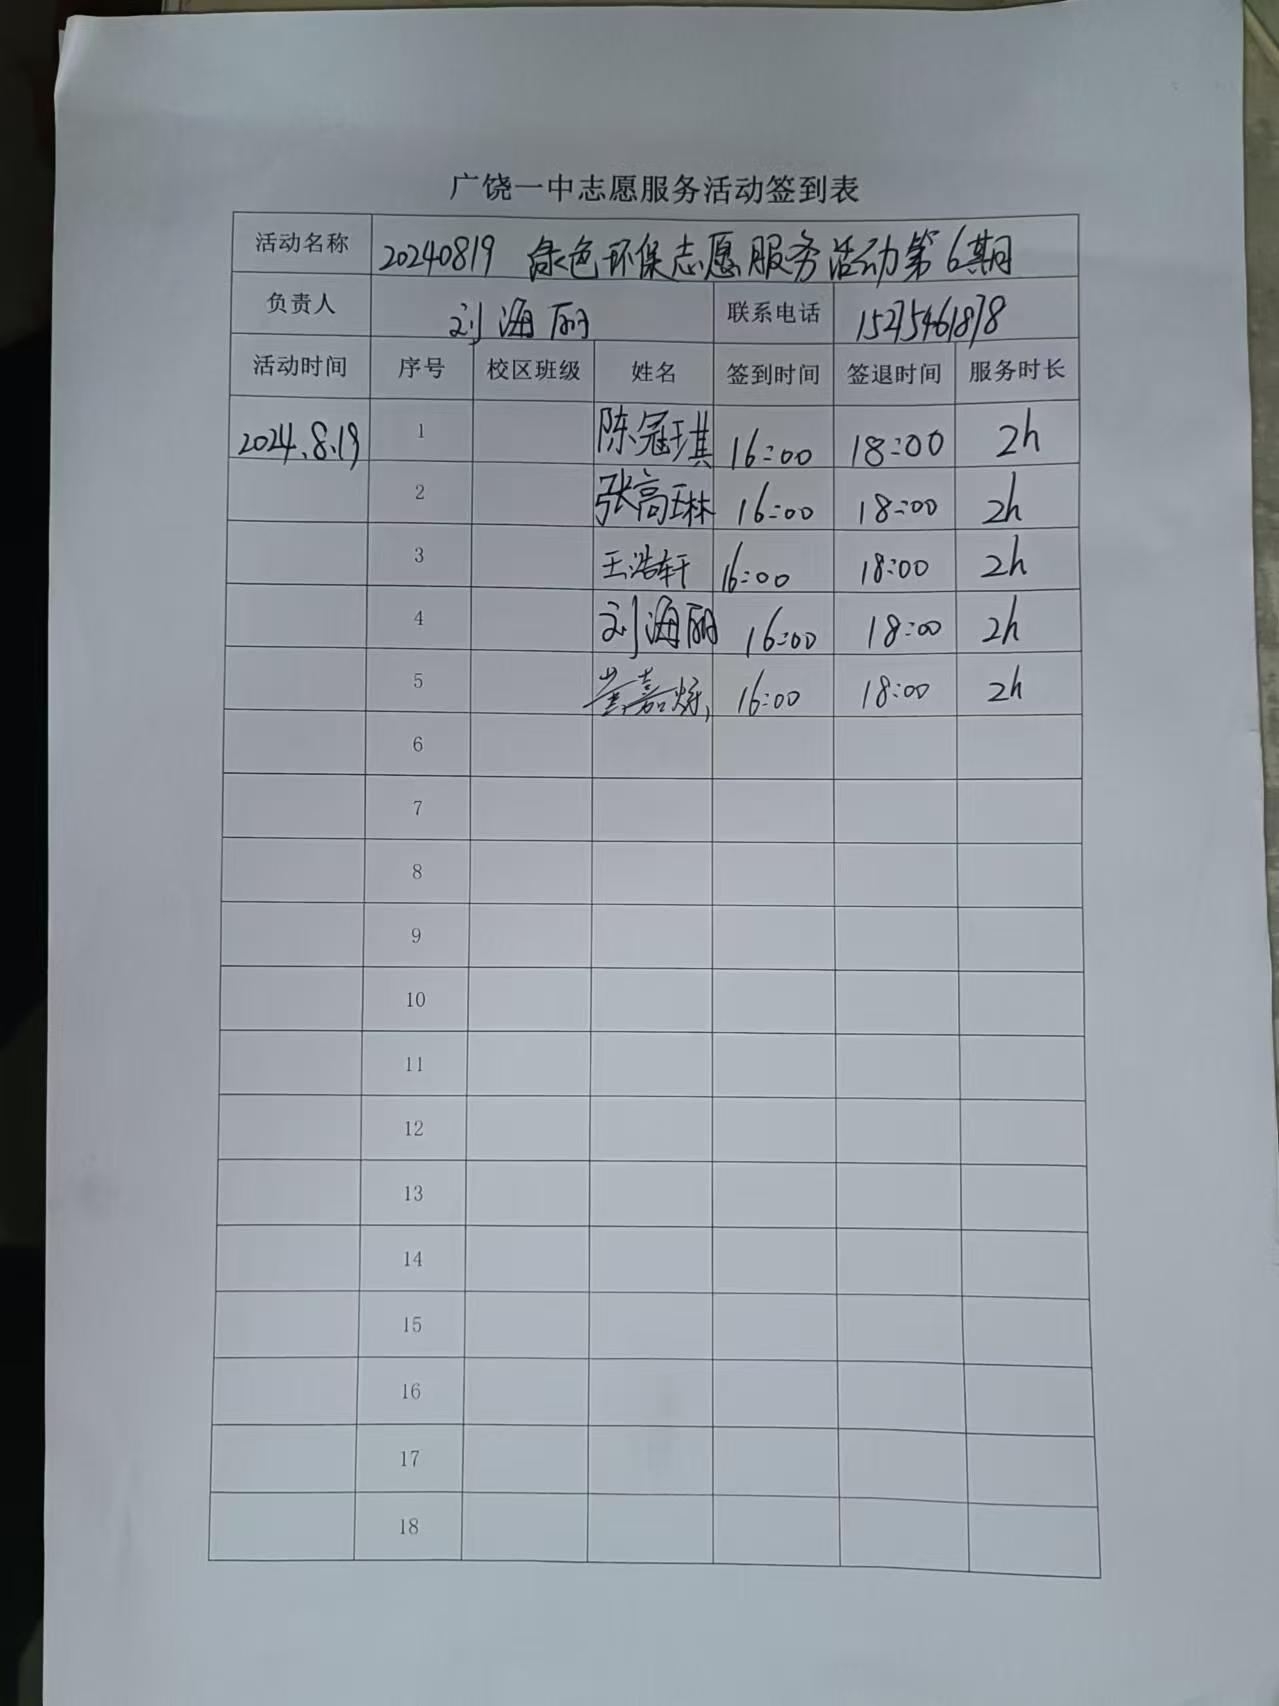 广饶一中志愿服务活动签到表
活动名称 20240819 绿色环保志愿服务活动第6期
负责人 刘海丽 联系电话 15275461878
活动时间 序号 校区班级 姓名 签到时间 签退时间 服务时长
2024.8.19 1 陈冠琪 16:00 18:00 2h
2 张高琳 16:00 18:00 2h
3 王浩轩 16:00 18:00 2h
4 刘海丽 16:00 18:00 2h
5 16:00 18:00 2h
6
7
8
9
10
11
12
13
14
15
16
17
18